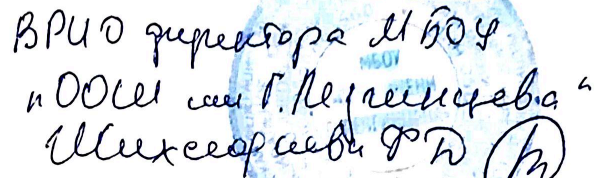 ВРИО директора МБОУ
"ООШ им Г. Лезгинцева"
Шихсефиева Ф Д